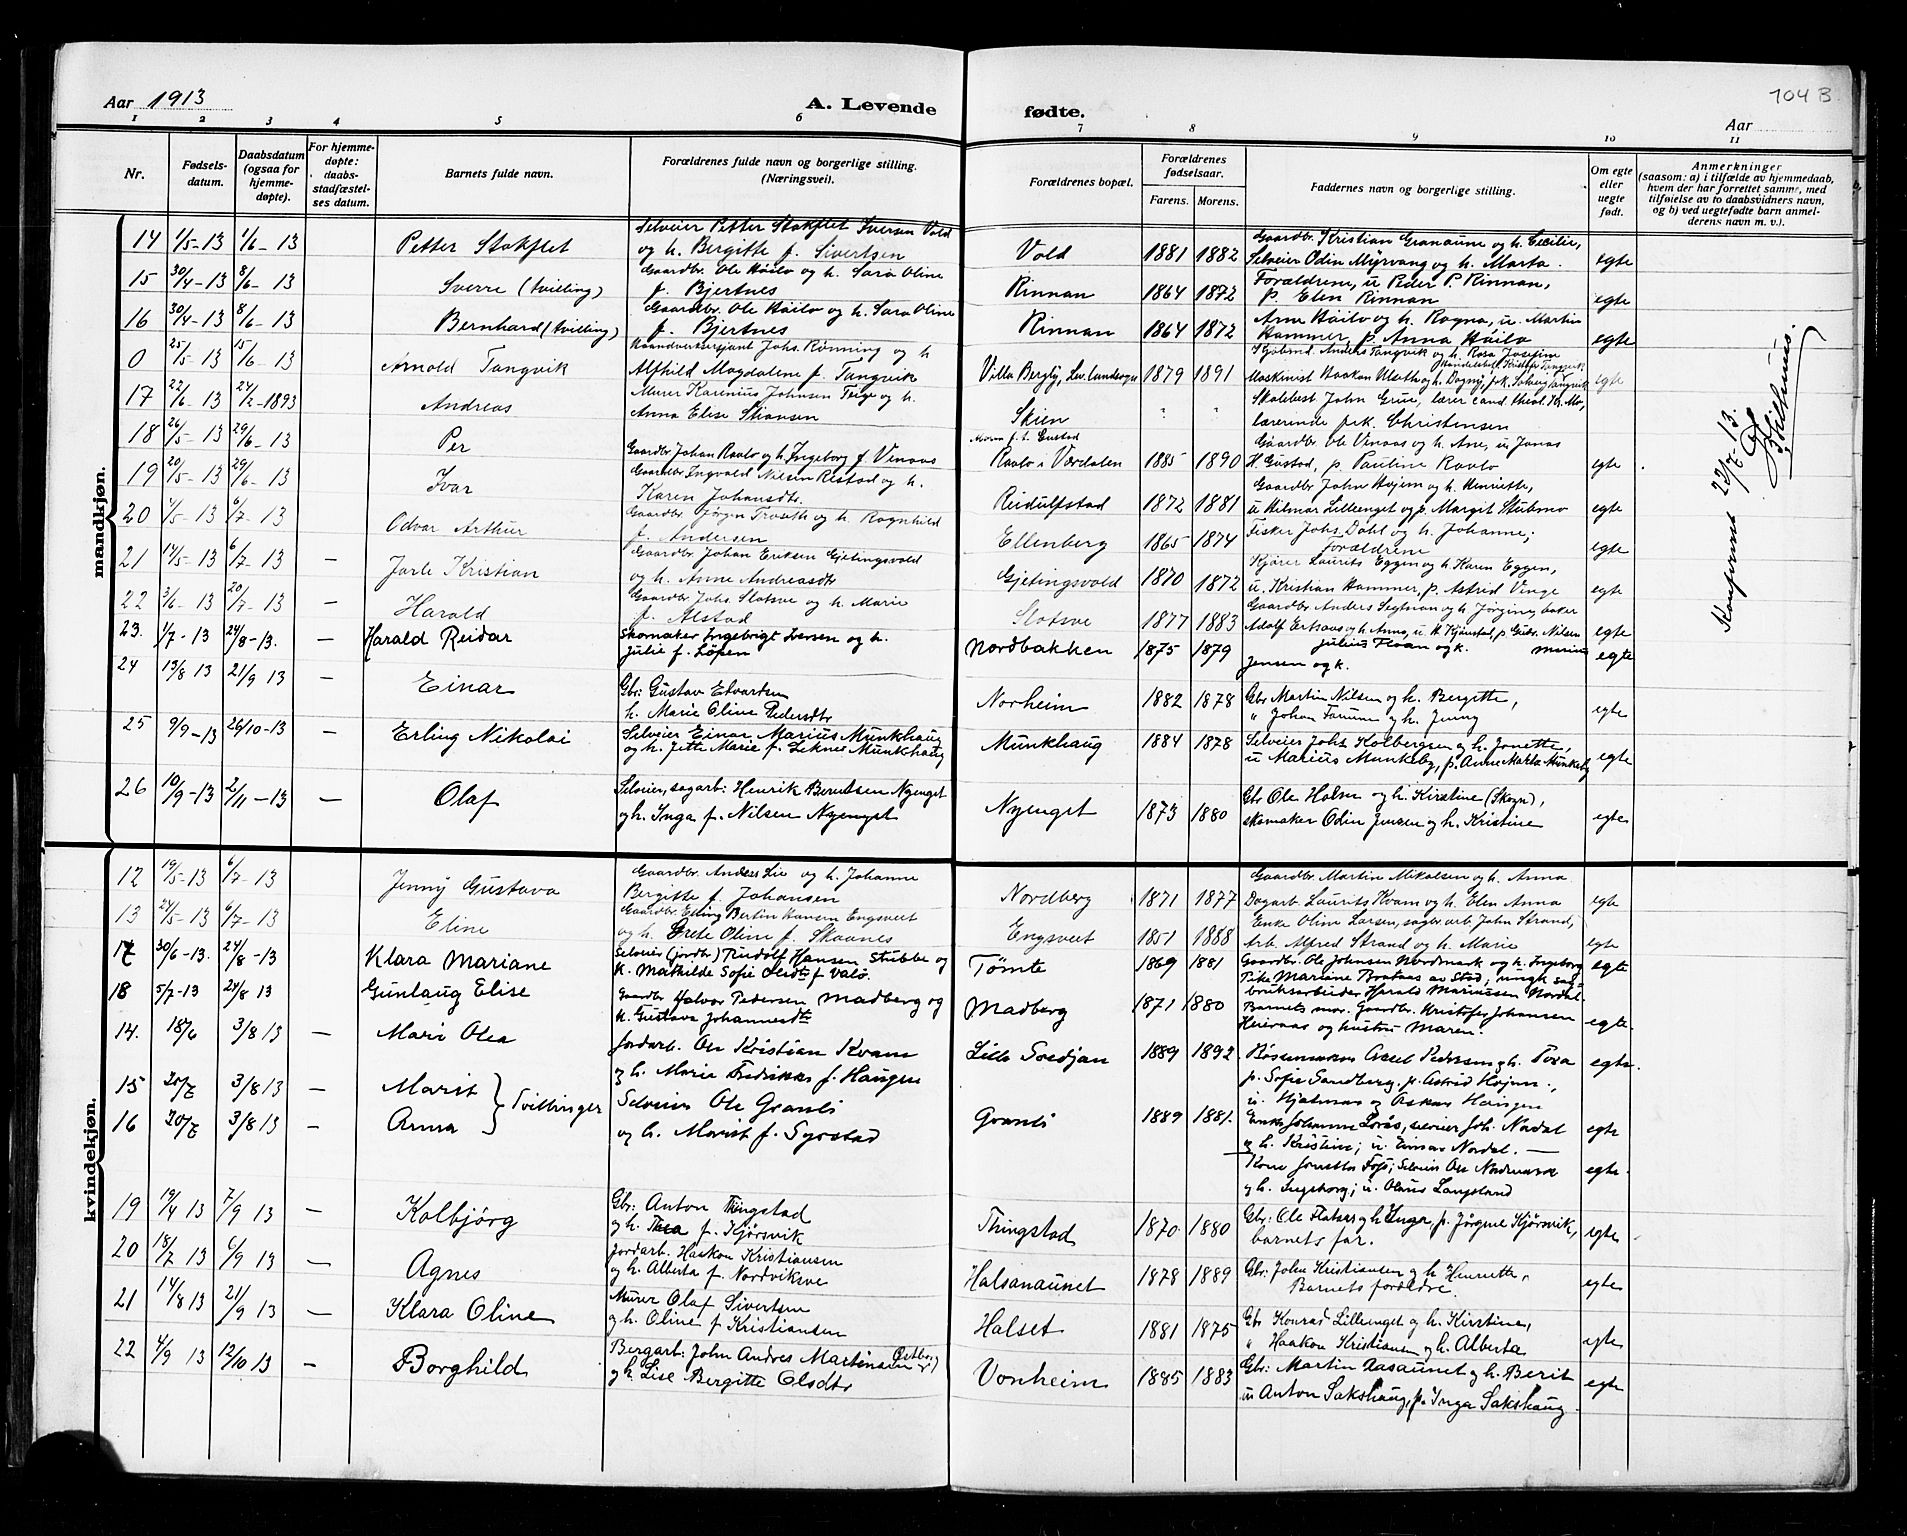 Aar 1913
A. Levende
fødte.
Aar
104 B
1 2 3 4 5 6 7 8 9 10 11
Nr.
Fødsels-
datum.
Daabsdatum
(ogsaa for
hjemme-
døpte).
For hjemme-
døpte:
daabs-
stadfæstel-
ses datum.
Barnets fulde navn.
Forældrenes fulde navn og borgerlige stilling.
(Næringsvei).
Forældrenes bopæl.
Forældrenes
fødselsaar.
Farens. Morens.
Faddernes navn og borgerlige stilling.
Om egte
eller
uegte
født.
Anmerkninger
(saasom: a) i tilfælde av hjemmedaab,
hvem der har forrettet samme, med
tilføielse av to daabsvidners navn,
og b) ved uegtefødte barn anmel-
derens navn m. v.).
mandkjøn.
14 1/5-13 1/6-13 Petter Stokflet Selveier Petter Stokflet Iversen Vold
og h. Bergitte f. Sivertsen Vold 1881 1882 Gaardbr. Kristian Granaune og h. Cecilie,
Selveier Odin Myrvang og h. Marta. egte
15 30/4-13 8/6-13 Sverre (tvilling) Gaardbr. Ole Høilo og h. Sara Oline
f. Bjertnes Rinnan 1864 1872 Forældrene, u. Peder P. Rinnan,
p. Elen Rinnan egte
16 30/4-13 8/6-13 Bernhard (tvilling) Gaardbr. Ole Høilo og h. Sara Oline
f. Bjertnes Rinnan 1864 1872 Arne Høilo og h. Ragna, u. Martin
Hammer, p. Anna Høilo egte
0 25/5-13 15/6-13 Arnold Tangvik Haandverkersersjant Johs. Rønning og h
Alfhild Magdalene f. Tangvik Villa Berglij, Lev. landsogn 1879 1891 Kjøbmd. Anders Tangvik og h. Rosa Josefine
Maskinist Haakon og h. Dagny, frk. Solveig Tangvik egte
17 22/6-13 24/2-1893 Andreas Murer Karenius Johnsen Teige og h.
Anna Elise Stiansen Skien " " Skolebest. John Grue, lærer cand. theol.
lærerinde frk. Christensen
18 26/5-13 29/6-13 Per Gaardbr Johan Ravlo og h. Ingeborg f. Venaas Moren f. t. Gustad
Ravlo i Værdalen 1885 1890 Gaardbr Ole Venaas og h. Ane, u. Jonas
H. Gustad, p. Pauline Ravlo egte
19 20/5-13 29/6-13 Ivar Gaardbr Ingvald Nilsen Restad og h.
Karen Johansdtr. Reidulfstad 1872 1881 Gaardbr John Højem og h. Henriette,
u Hilmar Lillenget og p. Margit Stubmo egte
20 1/5-13 6/7-13 Odvar Arthur Gaardbr Jørgen Troseth og h Ragnhild
f. Andersen Ellenberg 1865 1874 Fisker Johs. Dahl og h. Johanne;
forældrene egte
21 14/5-13 6/7-13 — Jarle Kristian Gaardbr Johan Eriksen Gjetingsvold
og h. Anne Andreasdtr Gjetingsvold 1870 1872 Kjører Laurits Eggen og h Karen Eggen,
u. Kristian Hammer, p. Astrid Vinge egte
22 3/6-13 20/7-13 — Harald Gaardbr Johs. Slotsve og h Marie
f. Alstad Slotsve 1877 1883 Gaardbr Anders Segtnan og h Jørgine, baker
Adolf Ertsaas og h Anna, u. H Kjønstad, p Gusr. Nilsen egte
23. 1/7-13 24/8-13. — Harald Reidar Skomaker Ingebrigt Iversen og h.
Julie f.Løpen Nordbakken 1875 1879 Julius Floan og k. Marius
Jensen og k. egte
24 13/8 13 21/9 13 — Einar Gbr: Gustav Edvardsen
h. Marie Oline Pedersdtr Norheim 1882 1878 Gbr Martin Nilsen og h. Bergitte,
" Johan Tanum og h. Jenny egte
25 9/9-13 26/10-13 — Erling Nikolai Selveier Einar Marius Munkhaug
og h. Jette Marie f. Leknes Munkhaug Munkhaug 1884 1878 Selveier Johs Kolbergsen og h. Jonette,
u Marius Munkeby, p. Anne Marta Munkeby egte
26 10/9-13 2/11-13 — Olaf Selveier, sagarb: Henrik Berntsen Nyenget
og h. Inga f. Nilsen Nyenget Nyenget 1873 1880 Gbr Ole Holm og h. Kirstine (Skogn),
skomaker Odin Jensen og h. Kristine egte
Konfereret 22/7-13.
kvindekjøn.
12 19/5-13 6/7-13 Jenny Gustava Gaardbr. Anders Lie og h. Johanne
Bergitte f. Johansen Nordberg 1871 1877 Gaardbr. Martin Mikalsen og h. Anna
Dagarb. Laurits Kvam og h. Elen Anna egte
13 24/5-13 6/7-13 Eline Gaardbr. Erling Bertin Hansen Engsvert
og h. Grete Oline f. Skavnes Engsvert 1851 1888 Enke Oline Larsen, sagbr.arb. John Strand,
Arb. Alfred Strand og h. Marie egte
17 30/6-13. 24/8-13 Klara Mariane Selveier (jordbr.) Rudolf Hansen Stubbe og
K. Mathilde Sofie f Valø Tømte 1869 1881 Gaardbr. Ole Johnsen Nordmark og h. Ingeborg
Pike Mariane Brataas av Stod, ungk. sag-
bruksarbeider Harald Mariussen Nordal. egte
18 5/7-13 24/8 13 Gunlaug Elise Gaardbr Halvor Pedersen Madberg og
k. Gustava Johannesdtr Madberg 1871 1880 Barnets mor. Gaardbr. Kristofer Johansen
Heieraas og hustru Maren. egte.
14. 18/6 3/8 13 — Mari Olea Jordarb. Ole Kristian Kvam
og h. Marie Fredrikke f. Haugen Lille Svedjan 1889 1892 Bøssemaker Axel Pedersen og h. Tora
p. Sofie Sandberg. p. Astrid Hojem.,
u. Hjalmar og Oskar Haugen egte.
15 20/7 3/8 13 — Marit
16 20/7 3/8 13 — Anna } Tvillinger Selveier Ole Granli
og h. Marit f. Syrstad Granli 1889 1881. Enke Johanna Lorås, selveier Joh. Nordal
og h. Kristine; u. Einar Nordal. — egte
Kone Jonetta Fossi; Selveier Ole Nordmark
og h. Ingeborg; u. Olaus Langstand egte.
19 19/4 13 7/9 13 — Kolbjørg Gbr: Anton Thingstad
og h. Thea f. Kjørsvik Thingstad 1870 1880 Gbr: Ole Flataas og h Inga, p. Jørgine Kjørsvik,
barnets far. egte
20 18/7 13 6/9 13 — Agnes Jordarb. Haakon Kristiansen
og h. Alberta f. Nordviksve Halsanaunet 1878 1889 Gbr: John Kristiansen og h Henrette,
Barnets foreldre. egte
21 14/8 13 21/9 13 — Klara Oline Murer Olaf Sivertsen
og h. Oline f. Kristiansen Halset 1881 1875 Gbr Konrad Lillenget og h. Kirstine,
" Haakon Kristiansen og h. Alberta egte
22 4/9 13 12/10 13 — Borghild Bergarb: John Andres Martinsen (Østbo)
og h. Lise Bergitte Olsdtr Vonheim 1885 1883 Gbr: Martin Aasaunet og h. Berit
u Anton Sakshaug, p. Inga Sakshaug. egte